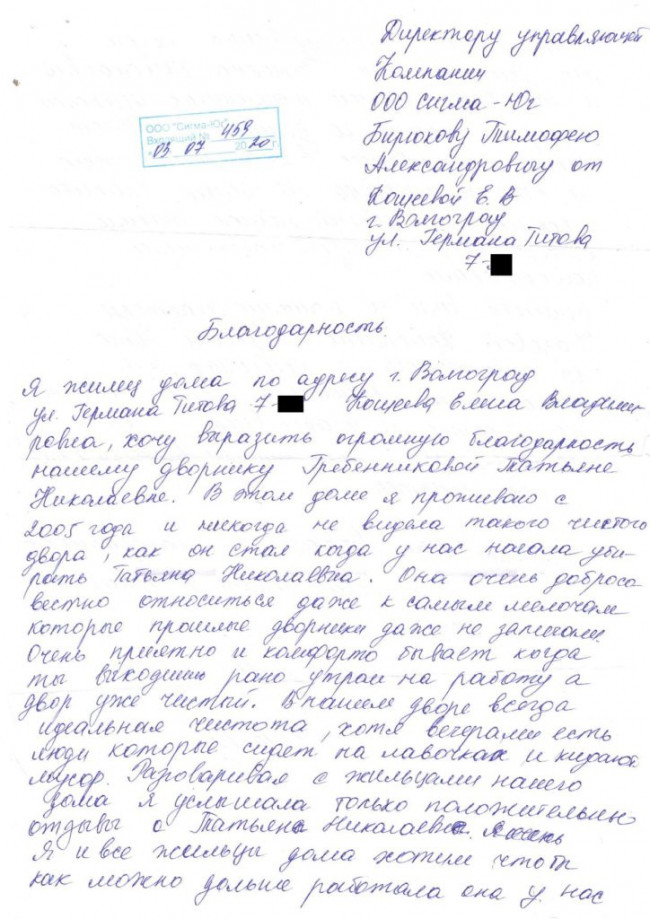 Директору управляющей
Компании
ООО Сигма-Юг
Бирюкову Тимофею
Александровичу от
Кощеевой Е. В
г. Волгоград
ул. Германа Титова
7-
ООО "Сигма-Юг"
Входящий № 459
"03" 07 2020г.
Благодарность
Я жилец дома по адресу г. Волгоград
ул. Германа Титова 7- Кощеева Елена Владими-
ровна, хочу выразить огромную благодарность
нашему дворнику Гребенниковой Татьяне
Николаевне. В этом доме я проживаю с
2005 года и никогда не видела такого чистого
двора, как он стал когда у нас начала уби-
рать Татьяна Николаевна. Она очень добросо
вестно относиться даже к самым мелочам
которые прошлые дворники даже не замечали
Очень приятно и комфорто бывает когда
ты выходишь рано утром на работу а
двор уже чистый. В нашем дворе всегда
идеальная чистота, хотя вечерами есть
люди которые сидят на лавочках и кидают
мусор. Разговаривая с жильцами нашего
дома я услышала только положительные
отзывы о Татьяне Николаевне.
Я и все жильцы дома хотим чтобы
как можно дольше работала она у нас